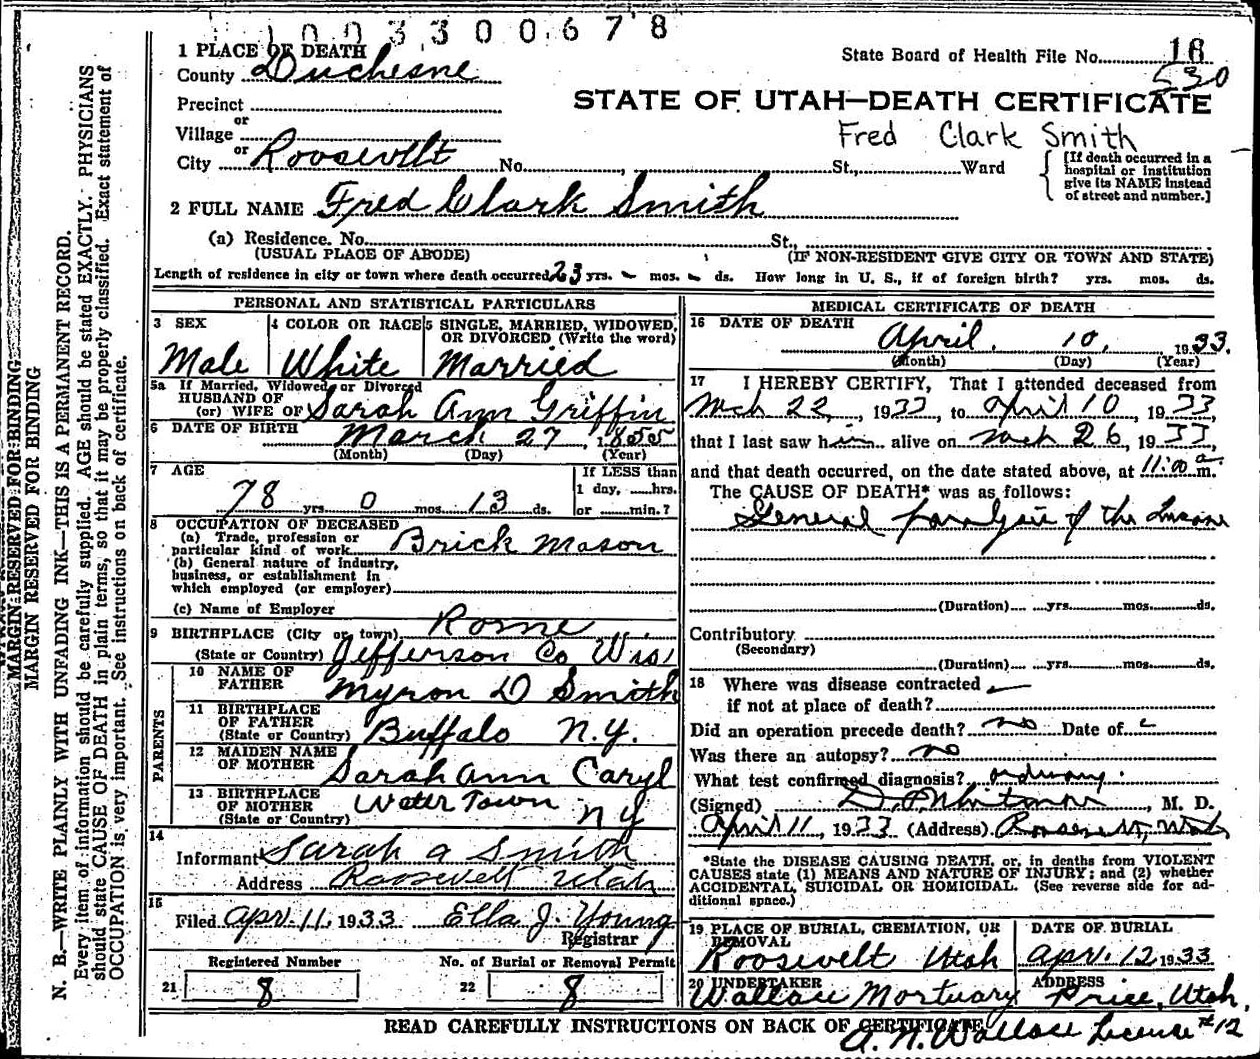 1003300678
1 PLACE OF DEATH
State Board of Health File No. 18
County Duchesne
530
Precinct
STATE OF UTAH—DEATH CERTIFICATE
or
Village
Fred Clark Smith
or
City Roosevelt No. , St., Ward
[If death occurred in a hospital or institution give its NAME instead of street and number.]
2 FULL NAME Fred Clark Smith
(a) Residence. No. St.,
(USUAL PLACE OF ABODE) (IF NON-RESIDENT GIVE CITY OR TOWN AND STATE)
Length of residence in city or town where death occurred 23 yrs. – mos. – ds. How long in U. S., if of foreign birth? yrs. mos. ds.
PERSONAL AND STATISTICAL PARTICULARS
3 SEX
Male
4 COLOR OR RACE
White
5 SINGLE, MARRIED, WIDOWED, OR DIVORCED (Write the word)
Married
5a If Married, Widowed, or Divorced
HUSBAND OF
(or) WIFE OF Sarah Ann Griffin
6 DATE OF BIRTH March 27, 1855
(Month) (Day) (Year)
7 AGE
78 yrs 0 mos. 13 ds.
If LESS than
1 day, hrs.
or min.?
8 OCCUPATION OF DECEASED
(a) Trade, profession or
particular kind of work Brick Mason
(b) General nature of industry,
business, or establishment in
which employed (or employer)
(c) Name of Employer
9 BIRTHPLACE (City or town) Rome
(State or Country) Jefferson Co Wis.
PARENTS
10 NAME OF
FATHER Myron D Smith
11 BIRTHPLACE
OF FATHER
(State or Country) Buffalo N.Y.
12 MAIDEN NAME
OF MOTHER Sarah Ann Caryl
13 BIRTHPLACE
OF MOTHER
(State or Country) Water Town N Y
14
Informant Sarah A Smith
Address Roosevelt Utah
15
Filed Apr. 11, 1933 Ella J. Young
Registrar
Registered Number No. of Burial or Removal Permit
21 8 22 8
MEDICAL CERTIFICATE OF DEATH
16 DATE OF DEATH
April 10, 1933.
(Month) (Day) (Year)
17 I HEREBY CERTIFY, That I attended deceased from
Mch 22, 1933, to April 10, 1933
that I last saw him alive on Mch 26, 1933,
and that death occurred, on the date stated above, at 11:00 a m.
The CAUSE OF DEATH* was as follows:
General Paralysis of the Insane
(Duration) yrs. mos. ds.
Contributory
(Secondary)
(Duration) yrs. mos. ds.
18 Where was disease contracted
if not at place of death?
Did an operation precede death? no Date of
Was there an autopsy? no
What test confirmed diagnosis? ordinary.
(Signed) Whitmore, M. D.
April 11, 1933 (Address) Roosevelt, Utah
*State the DISEASE CAUSING DEATH, or, in deaths from VIOLENT
CAUSES state (1) MEANS AND NATURE OF INJURY; and (2) whether
ACCIDENTAL, SUICIDAL OR HOMICIDAL. (See reverse side for ad-
ditional space.)
19 PLACE OF BURIAL, CREMATION, OR
REMOVAL
Roosevelt Utah
DATE OF BURIAL
Apr. 12, 1933
20 UNDERTAKER
Wallace Mortuary
ADDRESS
Price, Utah.
READ CAREFULLY INSTRUCTIONS ON BACK OF CERTIFICATE
A. N. Wallace License #12
MARGIN RESERVED FOR BINDING
MARGIN RESERVED FOR BINDING
N. B.—WRITE PLAINLY WITH UNFADING INK—THIS IS A PERMANENT RECORD.
Every item of information should be carefully supplied. AGE should be stated EXACTLY. PHYSICIANS
should state CAUSE OF DEATH in plain terms, so that it may be properly classified. Exact statement of
OCCUPATION is very important. See instructions on back of certificate.